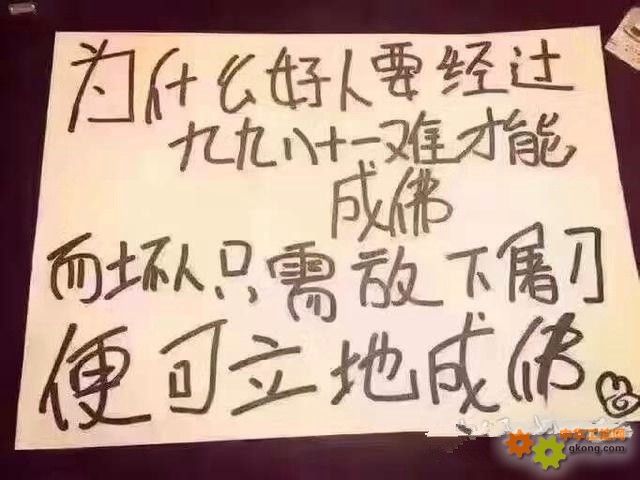 为什么好人要经过
九九八十一难才能
成佛
而坏人只需放下屠刀
便可立地成佛
gkong.com